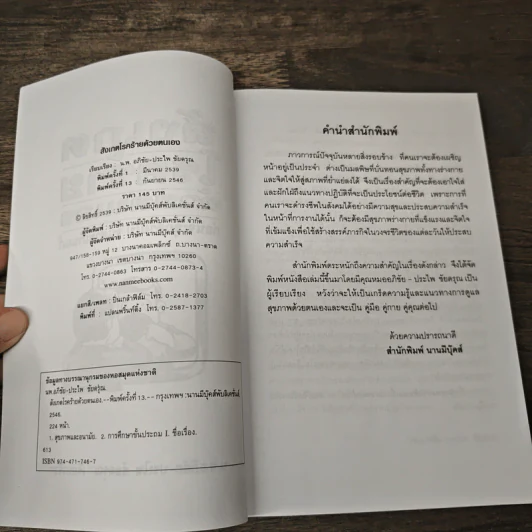 สังเกตโรคร้ายด้วยตนเอง
เรียบเรียง : น.พ. อภิชัย-ประไพ ชัยดรุณ
พิมพ์ครั้งที่ 1 : มีนาคม 2539
พิมพ์ครั้งที่ 13 : กันยายน 2546
ราคา 145 บาท
© ลิขสิทธิ์ 2539 : บริษัท นานมีบุ๊คส์พับลิเคชั่นส์ จำกัด
ผู้จัดพิมพ์ : บริษัท นานมีบุ๊คส์พับลิเคชั่นส์ จำกัด
ผู้จัดจำหน่าย : บริษัท นานมีบุ๊คส์ จำกัด
947/158-159 หมู่ 12 บางนาคอมเพล็กซ์ ถ.บางนา-ตราด
แขวงบางนา เขตบางนา กรุงเทพฯ 10260
โทร 0-2744-0863 โทรสาร 0-2744-0873-4
www.nanmeebooks.com
แยกสี/เพลท : ปิ่นเกล้าฟิล์ม โทร. 0-2418-2703
พิมพ์ที่ : แปลนพริ้นท์ติ้ง โทร. 0-2587-1377
ข้อมูลทางบรรณานุกรมของหอสมุดแห่งชาติ
นพ.อภิชัย-ประไพ ชัยดรุณ.
สังเกตโรคร้ายด้วยตนเอง.--พิมพ์ครั้งที่ 13.--กรุงเทพฯ:นานมีบุ๊คส์พับลิเคชั่นส์
2546.
224 หน้า.
1. สุขภาพและอนามัย. 2. การศึกษาขั้นประถม I. ชื่อเรื่อง.
613
ISBN 974-471-746-7
คำนำสำนักพิมพ์
ภาวการณ์ปัจจุบันหลายสิ่งรอบข้าง ที่คนเราจะต้องเผชิญ
หน้าอยู่เป็นประจำ ต่างเป็นมลพิษที่บั่นทอนสุขภาพทั้งทางร่างกาย
และจิตใจให้สู่สภาพที่ย่ำแย่ลงได้ จึงเป็นเรื่องสำคัญที่จะต้องเอาใจใส่
และฝักใฝ่ถึงแนวทางปฏิบัติที่จะเป็นประโยชน์ต่อชีวิต เพราะการที่
คนเราจะดำรงชีพในสังคมได้อย่างมีความสุขและประสบความสำเร็จ
ในหน้าที่การงานได้นั้น ก็จะต้องมีสุขภาพร่างกายที่แข็งแรงและจิตใจ
ที่เข้มแข็งเพื่อใช้สร้างสรรค์ภารกิจในวงจรชีวิตของแต่ละวันให้ประสบ
ความสำเร็จ
สำนักพิมพ์ตระหนักถึงความสำคัญในเรื่องดังกล่าว จึงได้จัด
พิมพ์หนังสือเล่มนี้ขึ้นมาโดยมีคุณหมออภิชัย - ประไพ ชัยดรุณ เป็น
ผู้เรียบเรียง หวังว่าจะให้เป็นเกร็ดความรู้และแนวทางการดูแล
สุขภาพด้วยตนเองและจะเป็น คู่มือ คู่กาย คู่คุณต่อไป
ด้วยความปรารถนาดี
สำนักพิมพ์ นานมีบุ๊คส์